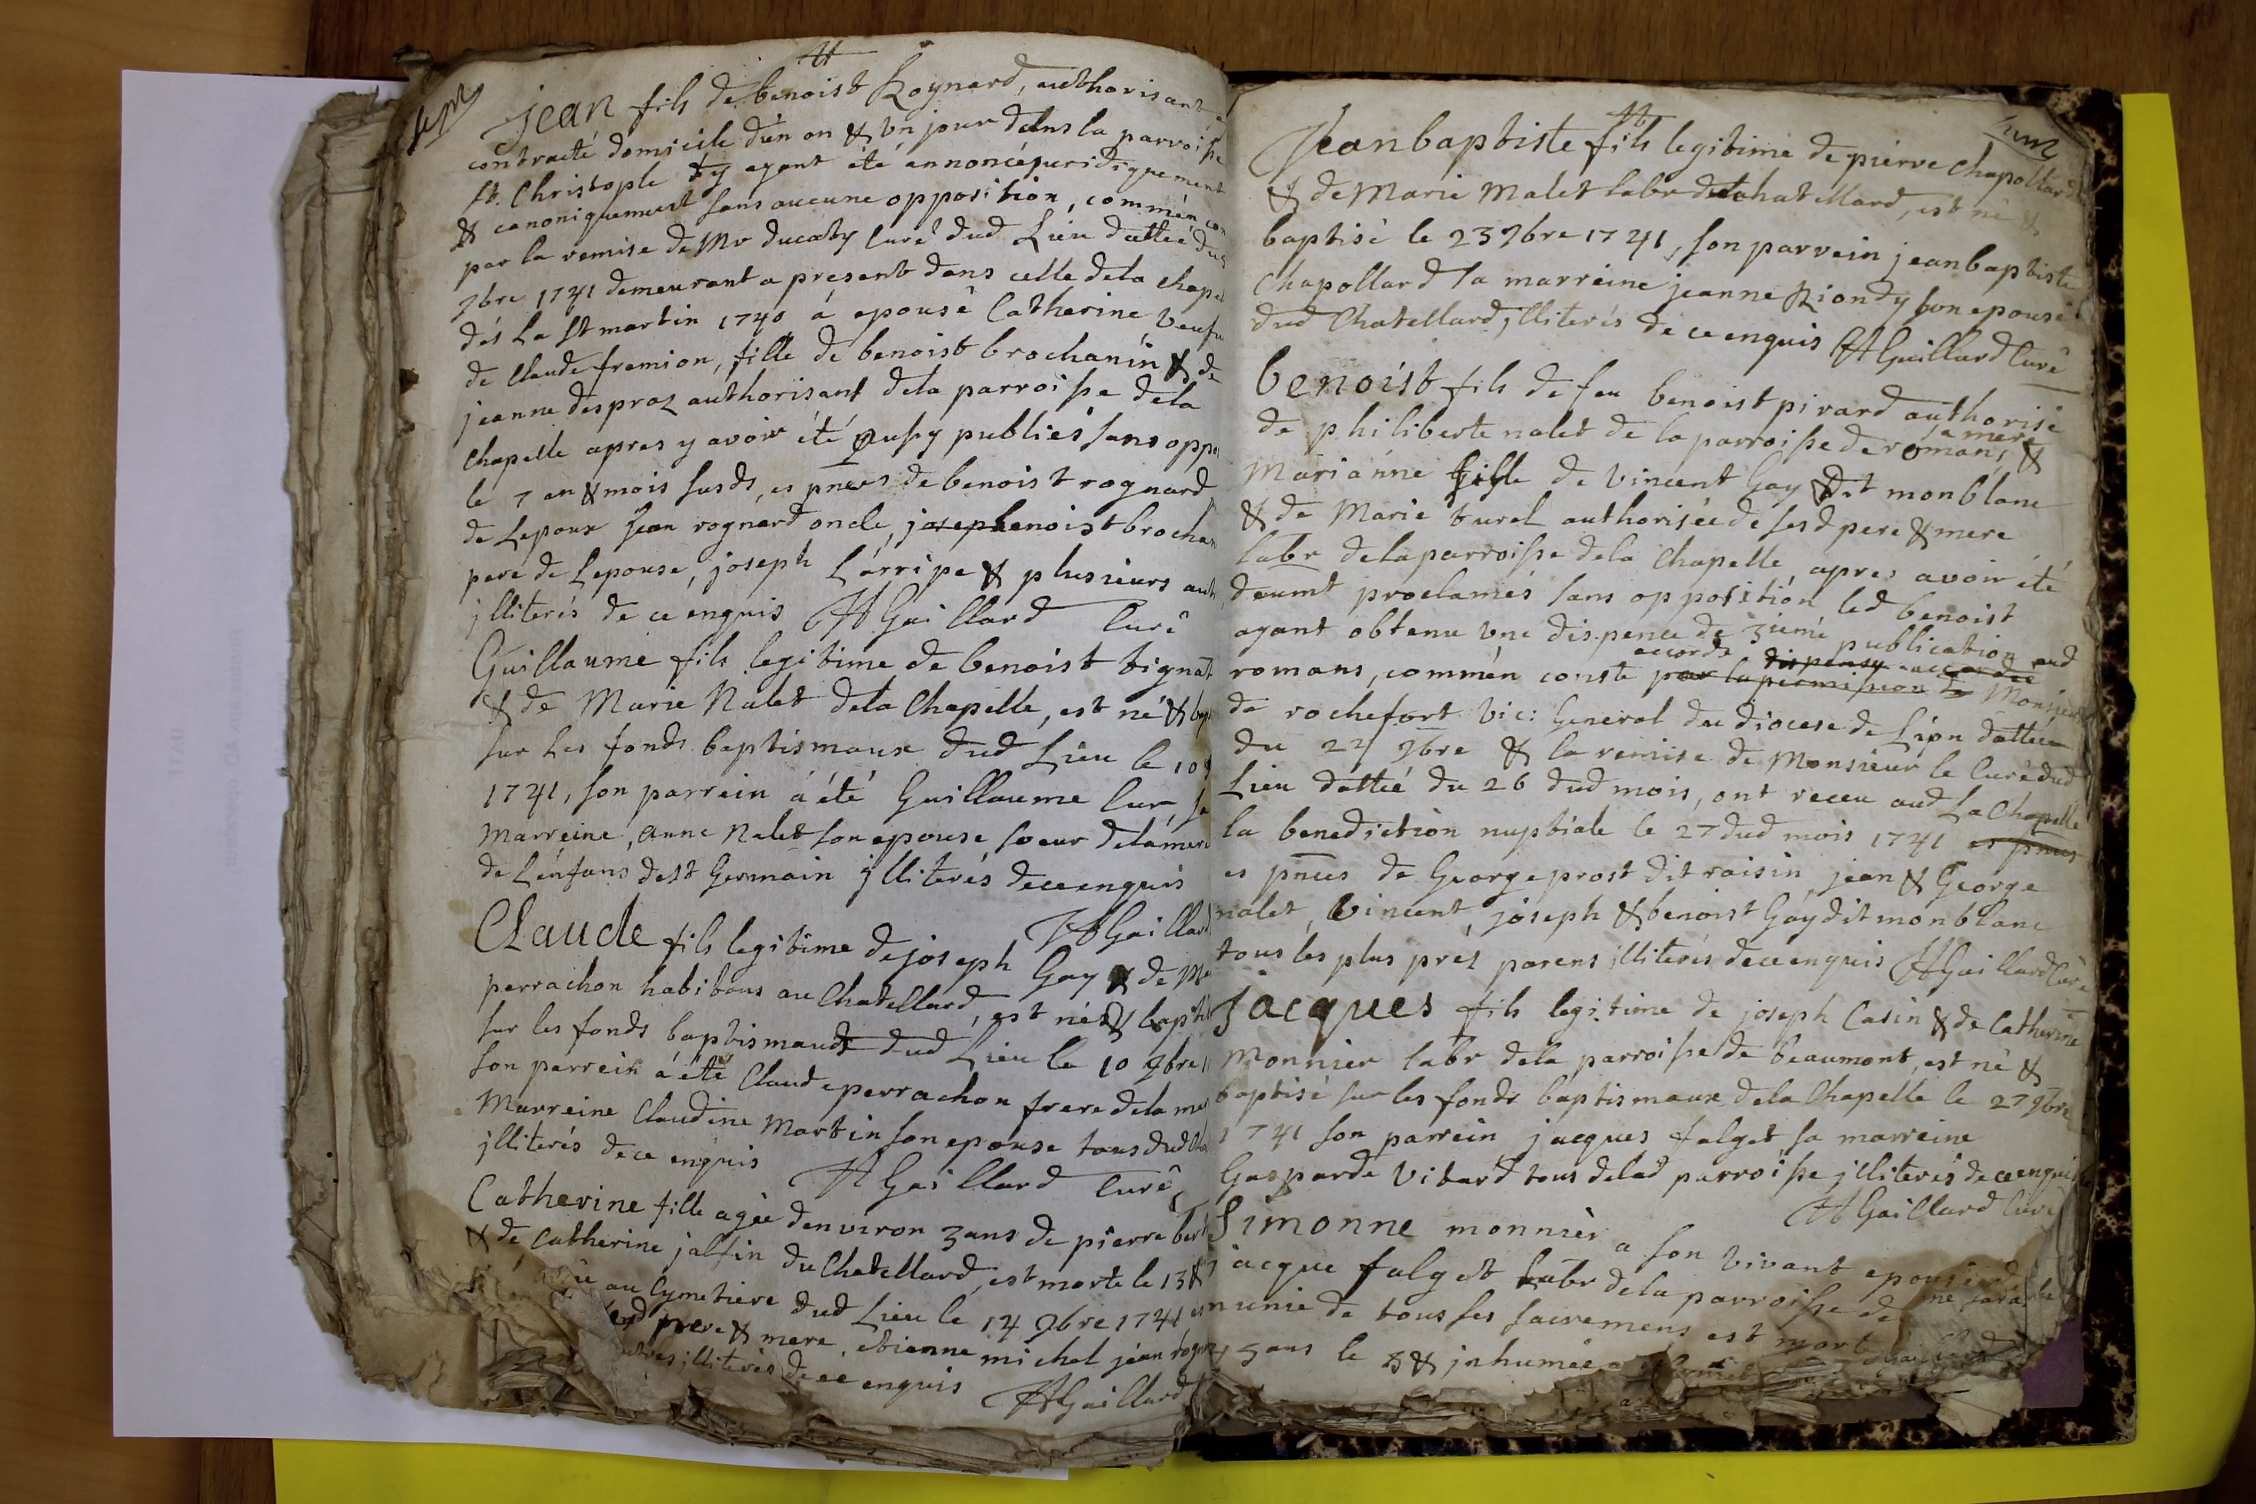 Jean fils de benoist Roynard, authorisant a
contracté domicile d'un an & un jour dans la parroisse
St. Christople & y ayant été annoncé juridiquement
& canoniquement sans aucune opposition, commén con
par la remise de Mr ducoty Curé dud Lieu dattée du
9bre 1741 demeurant a present dans celle dela chap
dés La St martin 1740 á epousé Catherine Veufu
de Claude framion, fille de benoist brochanin & de
jeanne despraz authorisant dela parroisse dela
Chapelle apres y avoir été aussy publiés sans oppo
le 7 an & mois susds, es pnces de benoist rognard
de Lepoux Jean rognard oncle, benoist brochan
pere de Lepouse, joseph L'arripe & plusieurs aut
jlliterés de ce enquis HGaillard Curé
Guillaume fils legitime de benoist tignat
& de Marie Nalet dela Chapelle, est né & bap
sur Les fonds baptismaux dud Lieu le 10 9
1741, son parrein á été Guillaume Cur sa
Marreine, anne Nalet son epouse soeur delamere
de L'enfans de St Germain jlliterés dece enquis
HGaillard
Claude fils legitime de joseph Gay & de Ma
perrachon habitans au Chatellard, est né & baptis
sur les fonds baptismaux dud Lieu le 10 9bre
son parrein á été Claude perrachon frere dela mer
Marreine Claudine Martin son epouse tous dud Cha
jlliterés dece enquis HGaillard Curé
Catherine fille agée denviron 3 ans de pierre bert
& de Catherine jalfin du Chatellard, est morte le 13 &
au Cymetiere dud Lieu le 14 9bre 1741 es
pere & mere, etienne michel jean rogn
jlliterés dece enquis HGaillard
Jean baptiste fils legitime de pierre Chapollard
& de Marie Malet labr de Chatellard, est né &
baptisé le 23 9bre 1741, son parrein jean baptiste
Chapollard sa marreine jeanne Riondy son epouse
dud Chatellard jlliterés de ce enquis HGaillard Curé
benoist fils de feu benoist pivard authorisé
de philiberte nalet sa mere de la parroisse de romans, &
Marianne fille de Vincent Gay dit monblanc
& de Marie turel authorisée de sesd pere & mere
labr dela parroisse dela Chapelle, apres avoir été
deumt proclamés sans opposition, led benoist
ayant obtenu une dispence de 3ieme publication aud
romans, commén conste par la permission dispensy accordée accordé Monsieur
de rochefort Vic: General du diocese de Lion dattée
du 22 9bre & la remise de Monsieur le Curé dud
Lieu dattée du 26 dud mois, ont receu aud La Chapelle
la benediction nuptiale le 27 dud mois 1741 es pnces
es pnces de George prost dit raisin, jean & George
nalet, Vincent, joseph & benoist Gay dit monblanc
tous les plus prés parens jlliterés dece enquis HGaillard Curé
Jacques fils legitime de joseph Casin & de Catherine
Monnier labr dela parroisse de beaumont, est né &
baptisé sur les fonds baptismaux dela Chapelle le 27 9bre
1741 son parrein jacques falget sa marreine
Gasparde Vitard tous delad parroisse jlliterés dece enquis
HGaillard Curé
Simonne monnier a son vivant epouse
jacque falget labr dela parroisse de
munie de tous ses sacremens, est mort
5 ans le & jnhumée